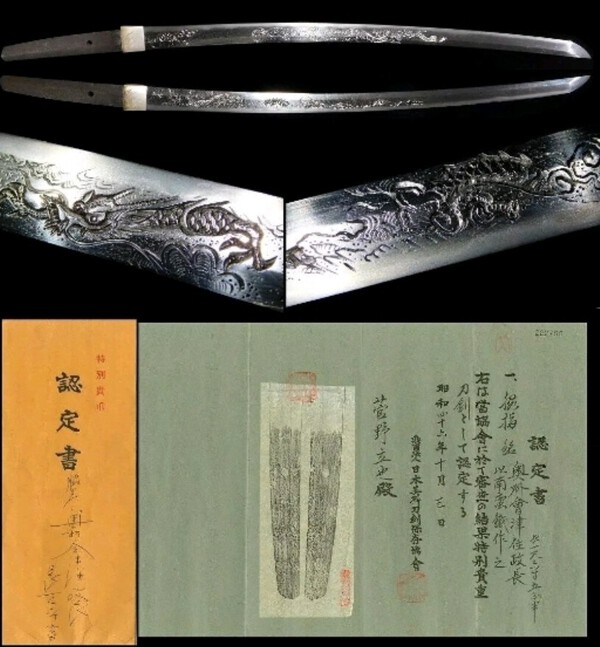 特別貴重
認定書
認定書
一、脇指 銘 奥州會津住政長
以南蛮鐵作之
右は當協會に於て審査の結果特別貴重
刀剣として認定する
昭和四十六年十月三日
財團法人日本美術刀剣保存協會
菅野立也殿